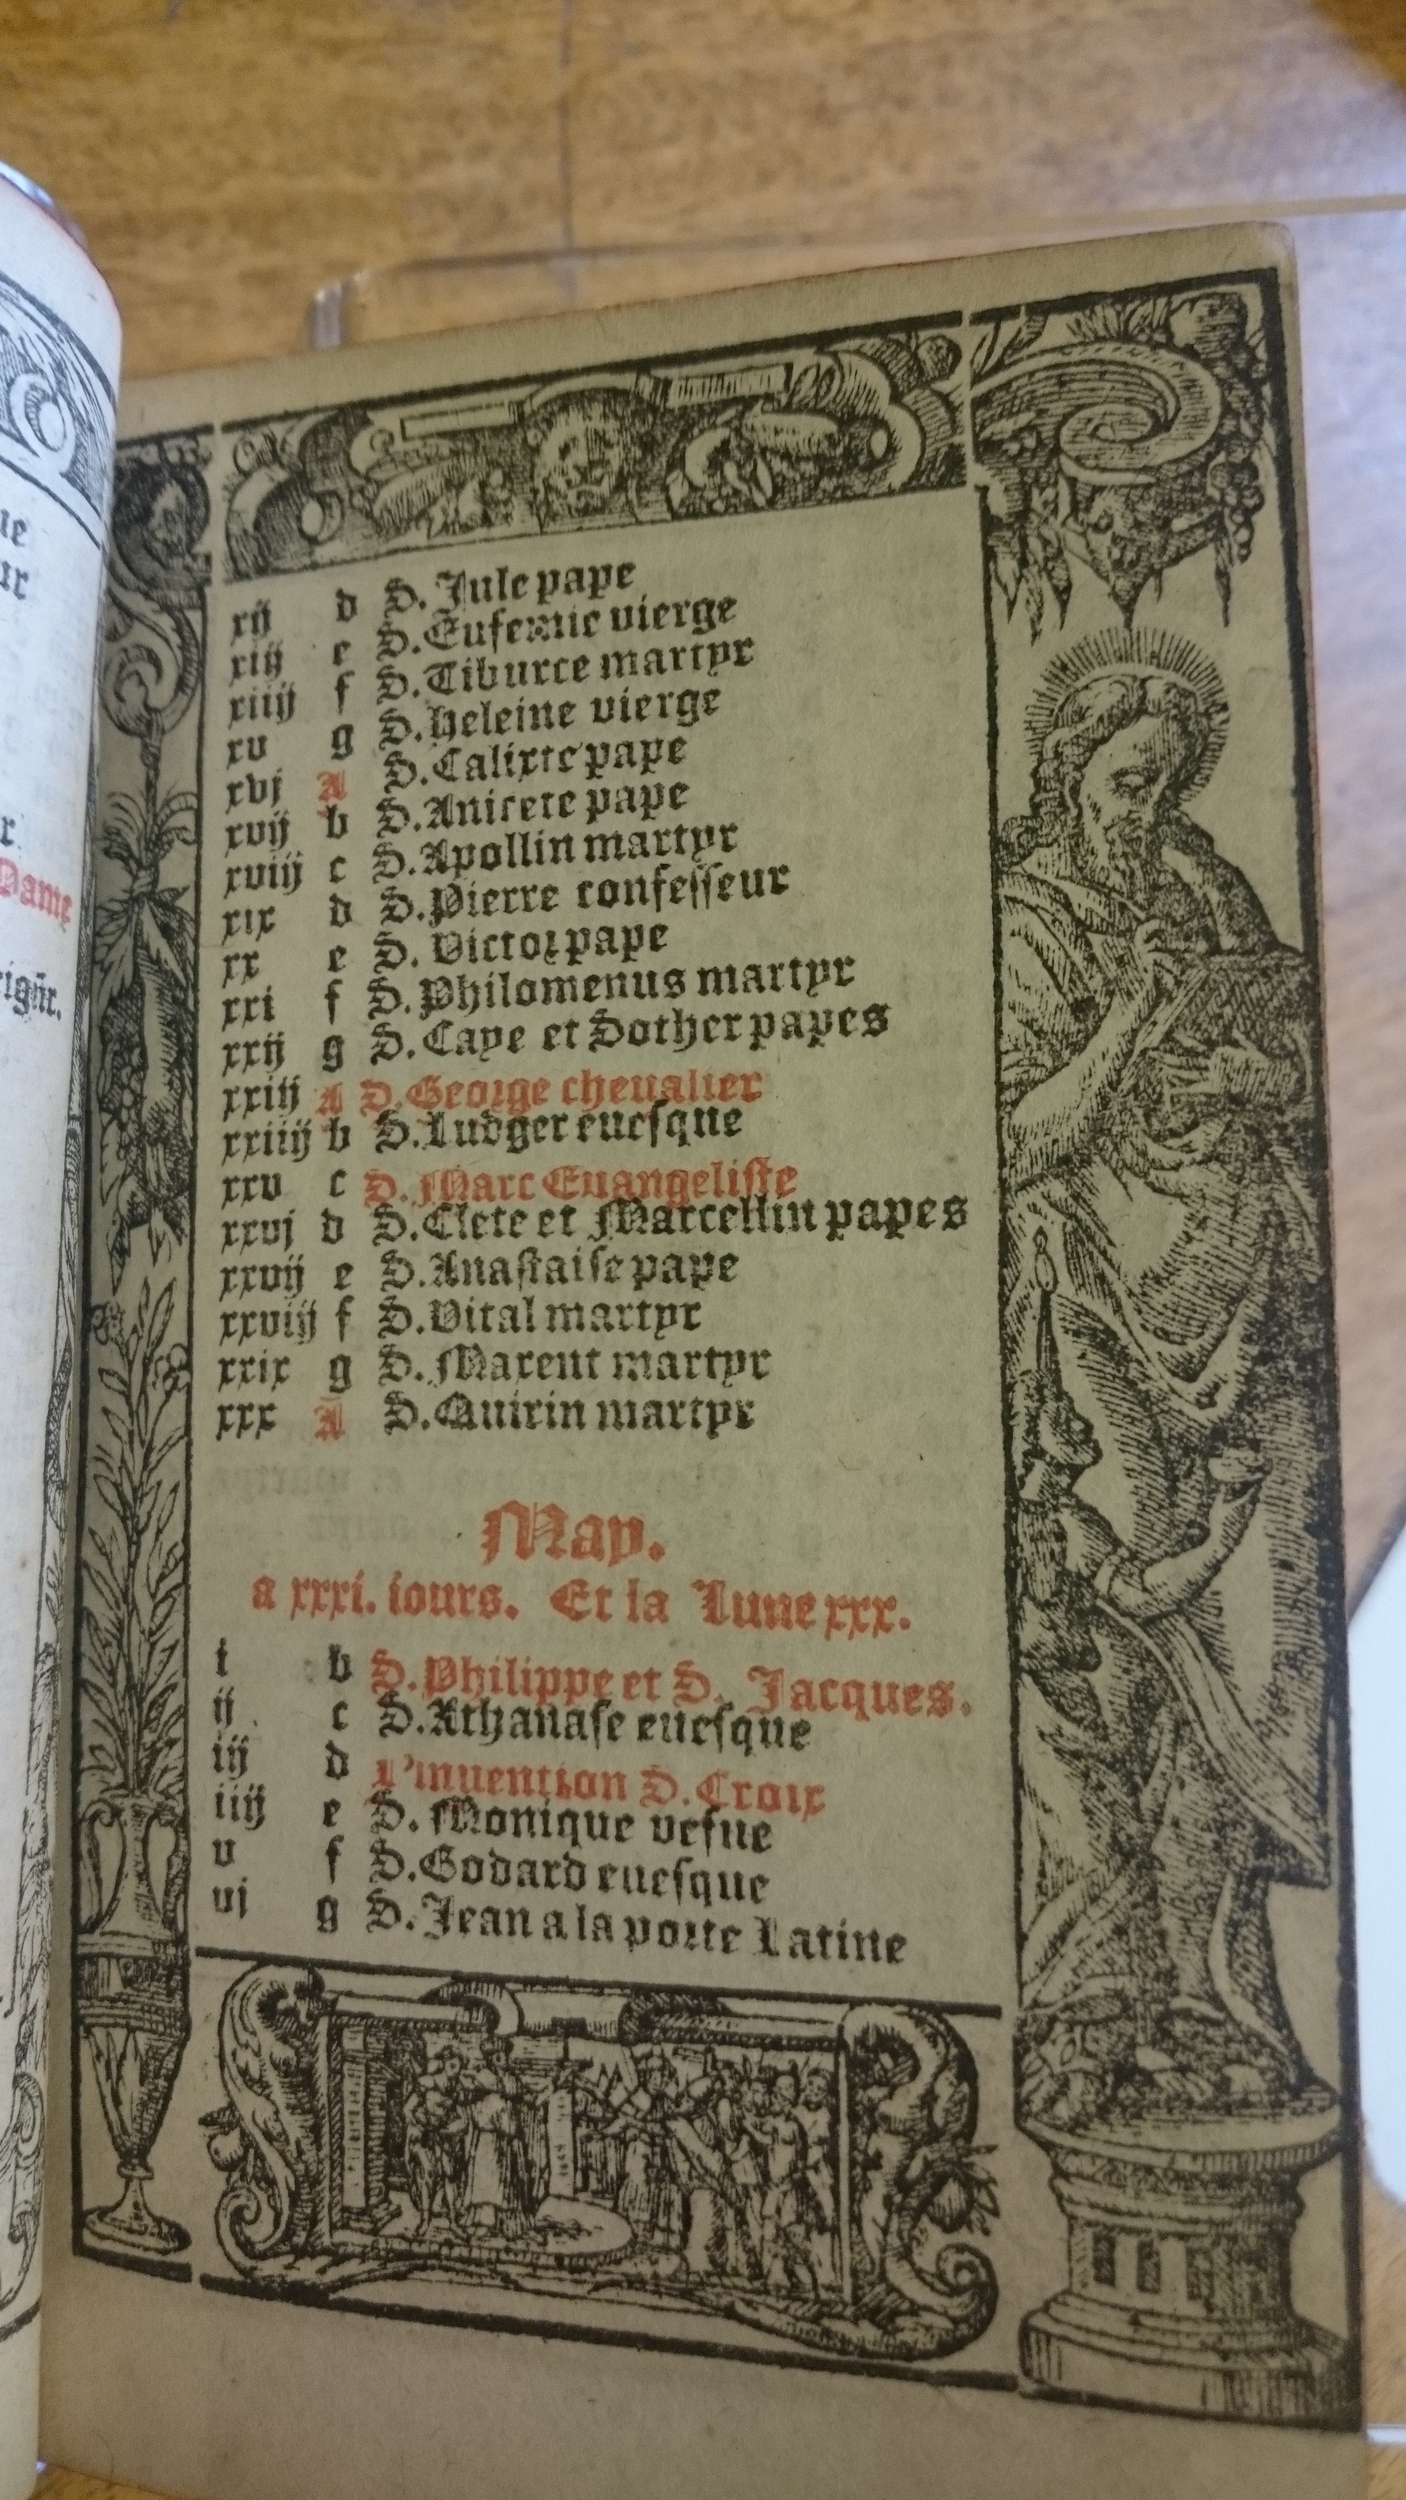 ue
ur
r
Dame
rigñr.
xij d S. Jule pape
xiij e S. Eufemie vierge
xiiij f S. Tiburce martyr
xv g S. Heleine vierge
xvj A S. Calixte pape
xvij b S. Anicete pape
xviij c S. Apollin martyr
xix d S. Pierre confesseur
xx e S. Victor pape
xxi f S. Philomenus martyr
xxij g S. Caye et Sother papes
xxiij A S. George cheualier
xxiiij b S. Ludger euesque
xxv c S. Marc Euangeliste
xxvj d S. Clete et Marcellin papes
xxvij e S. Anastaise pape
xxviij f S. Vital martyr
xxix g S. Maxent martyr
xxx A S. Quirin martyr
May.
a xxxi. iours. Et la Lune xxx.
i b S. Philippe et S. Jacques.
ij c S. Athanase euesque
iij d L'inuention S. Croix
iiij e S. Monique vefue
v f S. Godard euesque
vj g S. Jean a la porte Latine